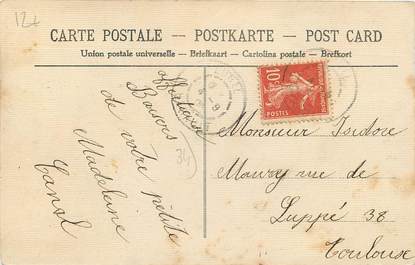 122
CARTE POSTALE — POSTKARTE — POST CARD
Union postale universelle – Briefkaart – Cartolina postale – Brefkort
Baisers
de votre petite
Madeleine
Canal
34
10
POSTES
Monsieur Isidore
Maury rue de
Luppé 38
Toulouse